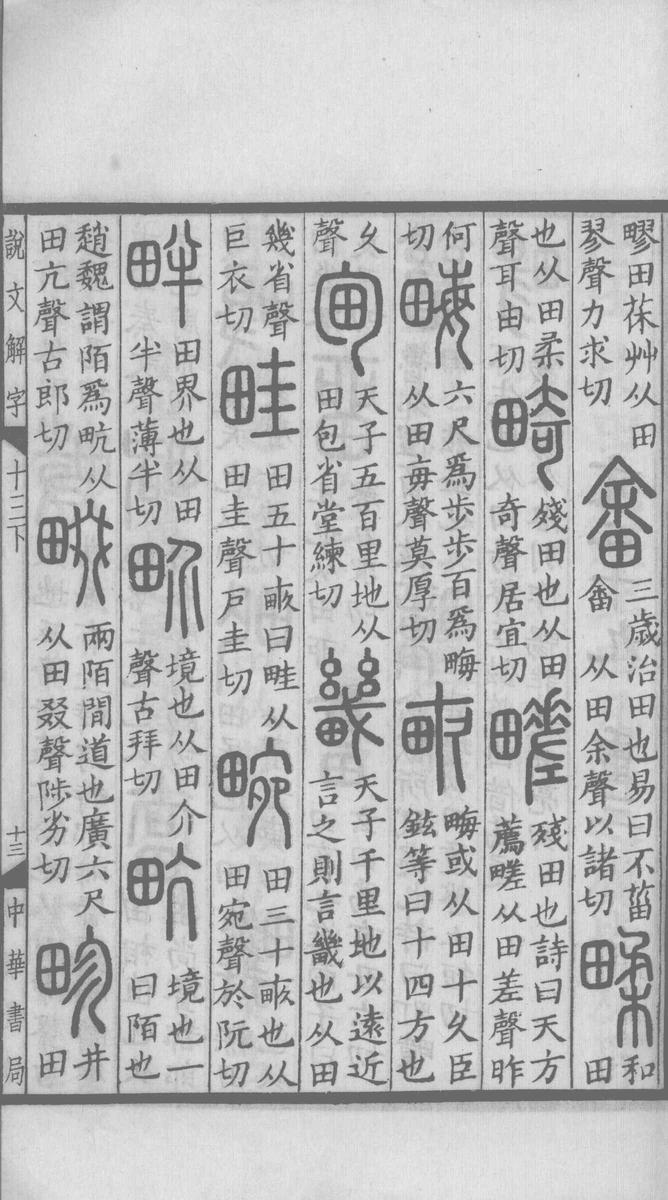 疁田茠艸从田
翏聲力求切
畬
三歲治田也易曰不葘
畬从田余聲以諸切
𤲬
和
田
也从田柔
聲耳由切
畸
殘田也从田
奇聲居宜切
𤳁
殘田也詩曰天方
薦𤳁从田差聲昨
何
切
畮
六尺爲步步百爲畮
从田每聲莫厚切
畞
畮或从田十久臣
鉉等曰十四方也
久
聲
甸
天子五百里地从
田包省堂練切
畿
天子千里地以遠近
言之則言畿也从田
幾省聲
巨衣切
畦
田五十畞曰畦从
田圭聲戶圭切
畹
田三十畞也从
田宛聲於阮切
畔
田界也从田
半聲薄半切
畍
境也从田介
聲古拜切
畂
境也一
曰陌也
趙魏謂陌爲畂从
田亢聲古郎切
畷
兩陌間道也廣六尺
从田叕聲陟劣切
畛
井
田
說文解字 十三下 十三 中華書局